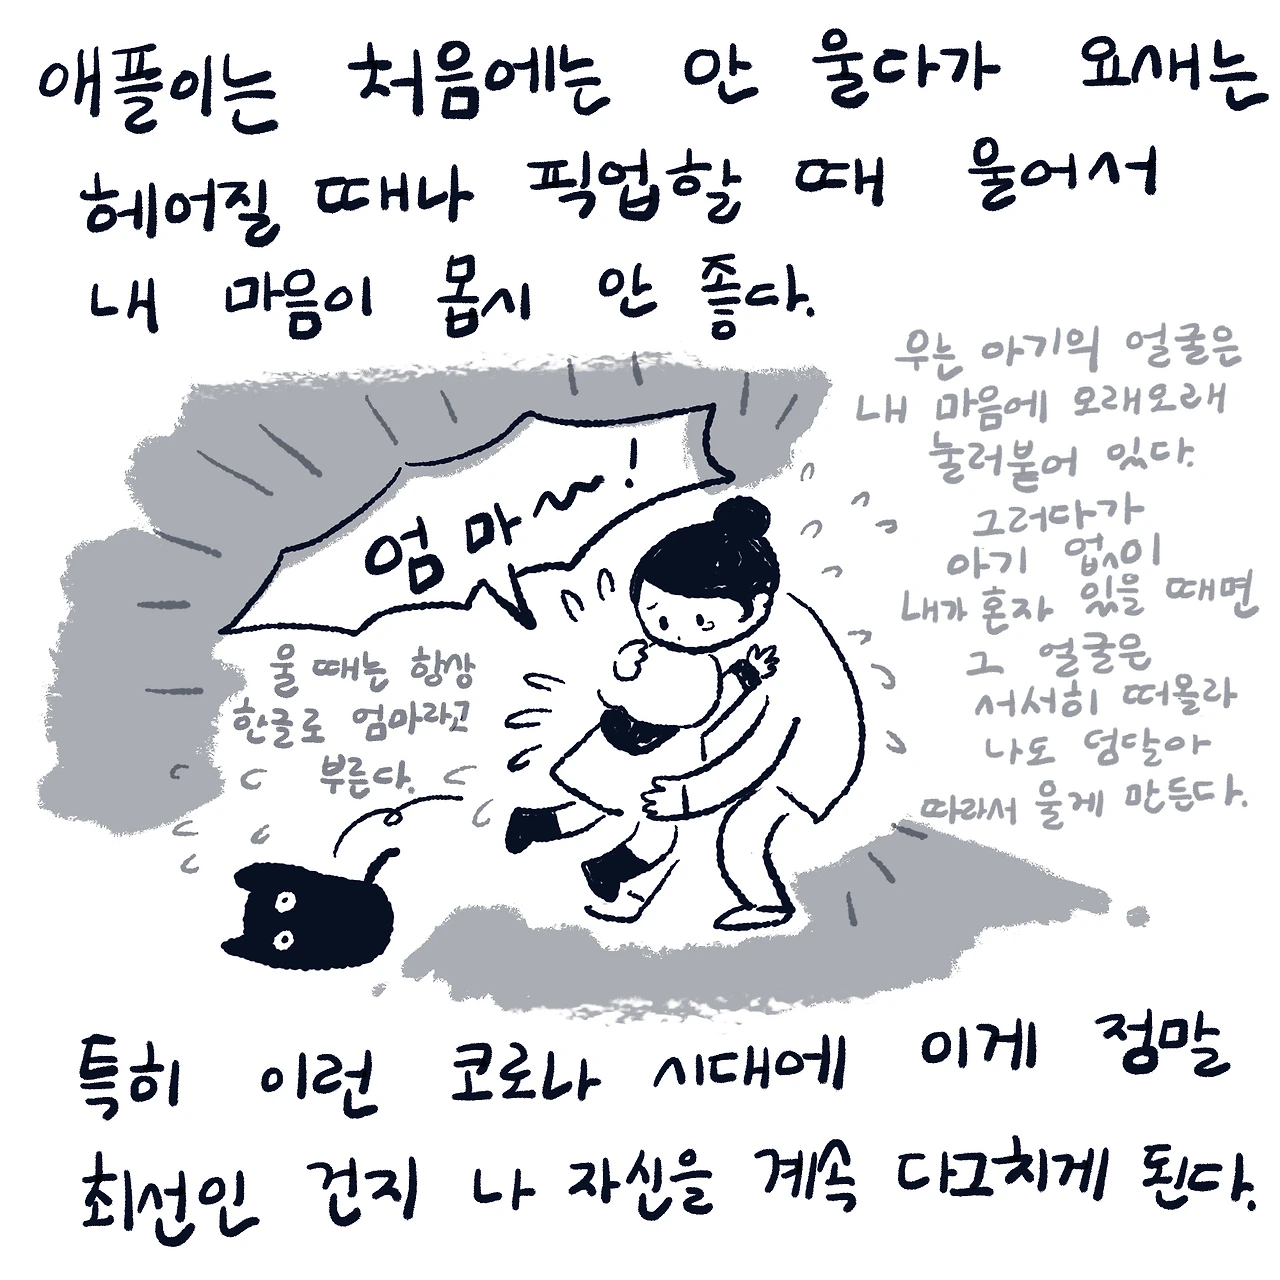 애플이는 처음에는 안 울다가 요새는
헤어질 때나 픽업할 때 울어서
내 마음이 몹시 안 좋다.
우는 아기의 얼굴은
내 마음에 오래오래
눌러붙어 있다.
그러다가
아기 없이
내가 혼자 있을 때면
그 얼굴은
서서히 떠올라
나도 덩달아
따라서 울게 만든다.
엄마~!
울 때는 항상
한글로 엄마라고
부른다.
특히 이런 코로나 시대에 이게 정말
최선인 건지 나 자신을 계속 다그치게 된다.